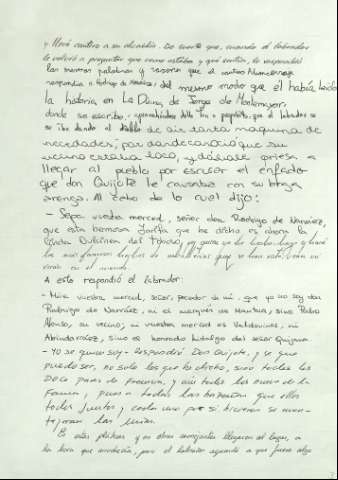 y llevó cautivo a su alcaidía. De suerte que, cuando el labrador
le volvió a preguntar que como estaba y qué sentía, le respondió
las mesmas palabras y razones que el cautivo Abencerraje
respondía a Rodrigo de Narváez, del mesmo modo que él había leído
la historia en La Diana, de Jorge de Montemayor,
donde se escribe; aprovechándose della tan a propósito, que el labrador se
se iba dando al diablo de oír tanta máquina de
necedades; por donde conoció que su
vecino estaba loco, y dábale priesa a
llegar al pueblo por escusar el enfado
que don Quijote le causaba con su larga
arenga. Al cabo de lo cual dijo:
- Sepa vuestra merced, señor don Rodrigo de Narváez,
que esta hermosa Jarifa que he dicho es ahora la
linda Dulcinea del Toboso, por quien yo he hecho, hago y haré
los más famosos hechos de caballerías que se han visto, vean ni
verán en el mundo.
A esto respondió el labrador:
- Mire vuestra merced, señor, pecador de mí, que yo no soy don
Rodrigo de Narváez, ni el marqués de Mantua, sino Pedro
Alonso, su vecino; ni vuestra merced es Valdovinos, ni
Abindarráez, sino el honrado hidalgo del señor Quijana.
- Yo sé quien soy - respondió Don Quijote, y sé que
puedo ser, no sólo los que he dicho, sino todos los
Doce Pares de Francia, y aún todos los nueve de la
Fama, pues a todas las hazañas que ellos
todos juntos y cada uno por sí hicieron se aven-
tajarán las mías.
En estas pláticas y en otras semejantes llegaron al lugar, a
la hora que anochecía, pero el labrador aguardó a que fuese algo